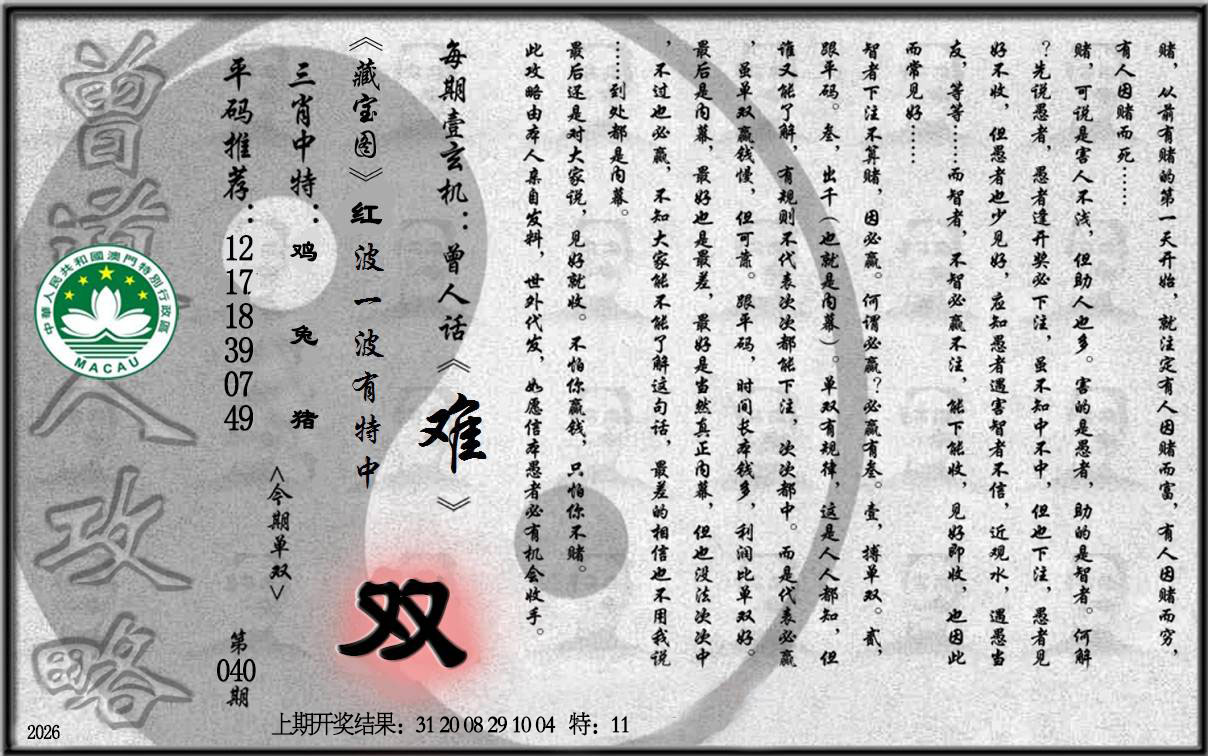 赌，从前有赌的第一天开始，就注定有人因赌而富，有人因赌而穷，
有人因赌而死……
赌，可说是害人不浅，但助人也多。害的是愚者，助的是智者。何解
？先说愚者，愚者逢开奖必下注，虽不知中不中，但也下注，愚者见
好不收，但愚者也少见好，应知愚者遇害智者不信，近观水，遇愚当
友，等等……而智者，不智必赢不注，能下能收，见好即收，也因此
而常见好……
智者下注不算赌，因必赢。何谓必赢？必赢有叁。壹，搏单双。贰，
跟平码。叁，出千（也就是内幕）。单双有规律，这是人人都知，但
谁又能了解，有规则不代表次次都能下注，次次都中。而是代表必赢
，虽单双赢钱慢，但可靠。跟平码，时间长本钱多，利润比单双好。
最后是内幕，最好也是最差，最好是当然真正内幕，但也没法次次中
，不过也必赢，不知大家能不能了解这句话，最差的相信也不用我说
……到处都是内幕。
最后还是对大家说，见好就收。不怕你赢钱，只怕你不赌。
此攻略由本人亲自发料，世外代发，如愿信本愚者必有机会收手。
每期壹玄机：曾人话《难》
《藏宝图》红波一波有特中
双
三肖中特：鸡 兔 猪
<今期单双>
平码推荐：12 17 18 39 07 49
第040期
曾道人攻略
中華人民共和國澳門特別行政區
MACAU
上期开奖结果：31 20 08 29 10 04 特：11
2026